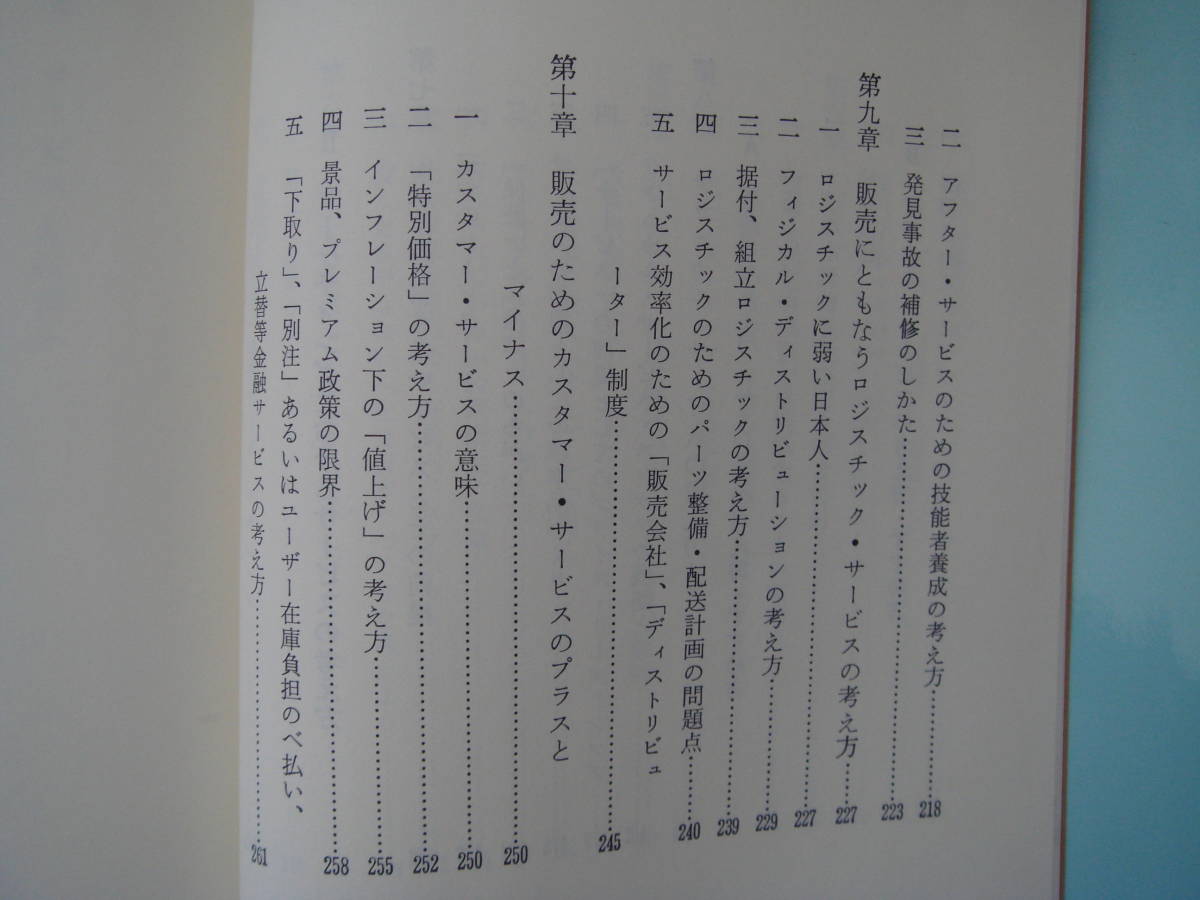 二　アフター・サービスのための技能者養成の考え方……………218
三　発見事故の補修のしかた……………223
第九章　販売にともなうロジスチック・サービスの考え方……………227
一　ロジスチックに弱い日本人……………227
二　フィジカル・ディストリビューションの考え方……………229
三　据付、組立ロジスチックの考え方……………239
四　ロジスチックのためのパーツ整備・配送計画の問題点……………240
五　サービス効率化のための「販売会社」、「ディストリビュ
ーター」制度……………245
第十章　販売のためのカスタマー・サービスのプラスと
マイナス……………250
一　カスタマー・サービスの意味……………250
二　「特別価格」の考え方……………252
三　インフレーション下の「値上げ」の考え方……………255
四　景品、プレミアム政策の限界……………258
五　「下取り」、「別注」あるいはユーザー在庫負担のべ払い、
立替等金融サービスの考え方……………261